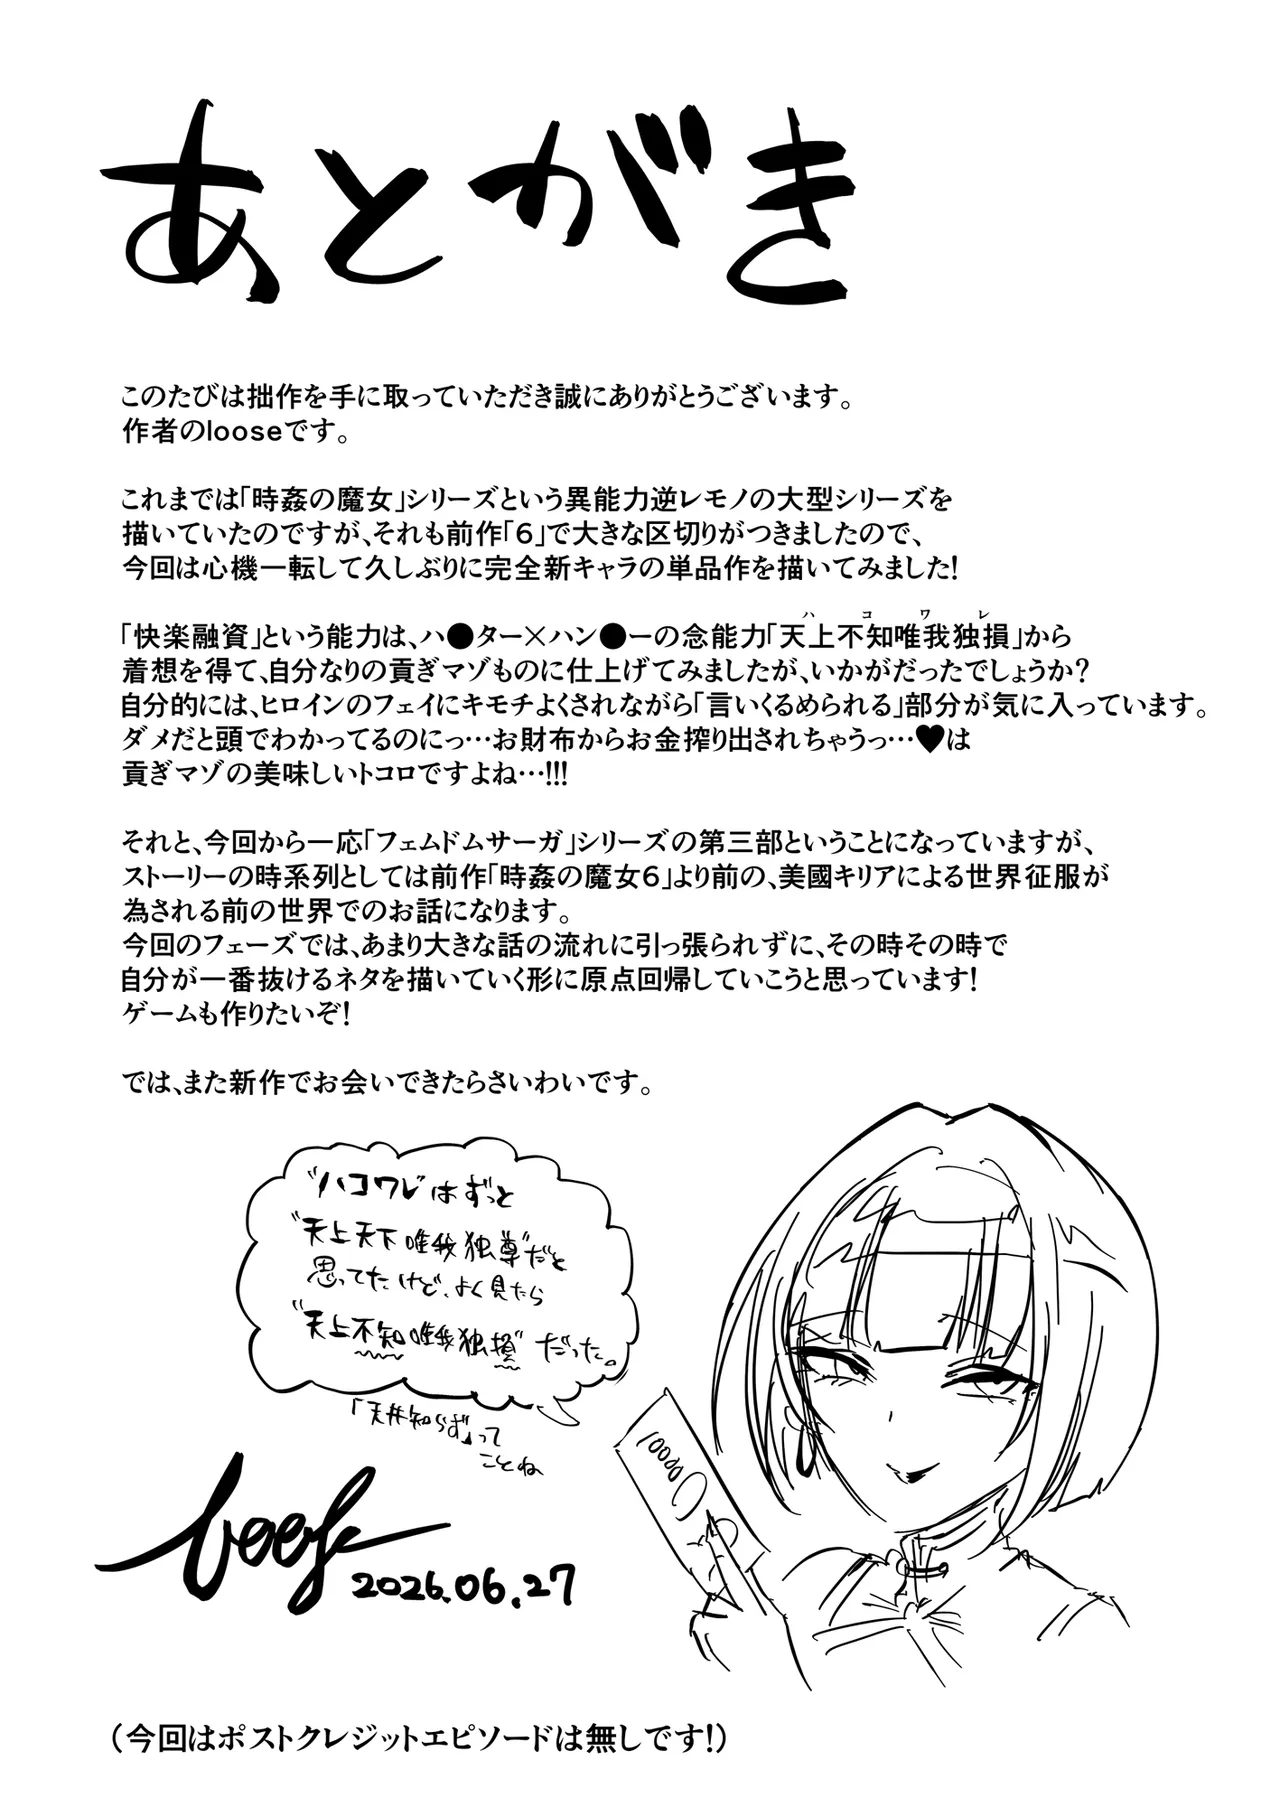 あとがき
このたびは拙作を手に取っていただき誠にありがとうございます。
作者のlooseです。
これまでは「時姦の魔女」シリーズという異能力逆レモノの大型シリーズを
描いていたのですが、それも前作「6」で大きな区切りがつきましたので、
今回は心機一転して久しぶりに完全新キャラの単品作を描いてみました!
ハコワレ
「快楽融資」という能力は、ハ●ター×ハン●ーの念能力「天上不知唯我独損」から
着想を得て、自分なりの貢ぎマゾものに仕上げてみましたが、いかがだったでしょうか?
自分的には、ヒロインのフェイにキモチよくされながら「言いくるめられる」部分が気に入っています。
ダメだと頭でわかってるのにっ…お財布からお金搾り出されちゃうっ…♥は
貢ぎマゾの美味しいトコロですよね…!!!
それと、今回から一応「フェムドムサーガ」シリーズの第三部ということになっていますが、
ストーリーの時系列としては前作「時姦の魔女6」より前の、美國キリアによる世界征服が
為される前の世界でのお話になります。
今回のフェーズでは、あまり大きな話の流れに引っ張られずに、その時その時で
自分が一番抜けるネタを描いていく形に原点回帰していこうと思っています!
ゲームも作りたいぞ!
では、また新作でお会いできたらさいわいです。
"ハコワレ"はずっと
"天上天下唯我独尊"だと
思ってたけど、よく見たら
"天上不知唯我独損"だった。
「天井知らず」って
ことね
loose
2026.06.27
10000
（今回はポストクレジットエピソードは無しです!）